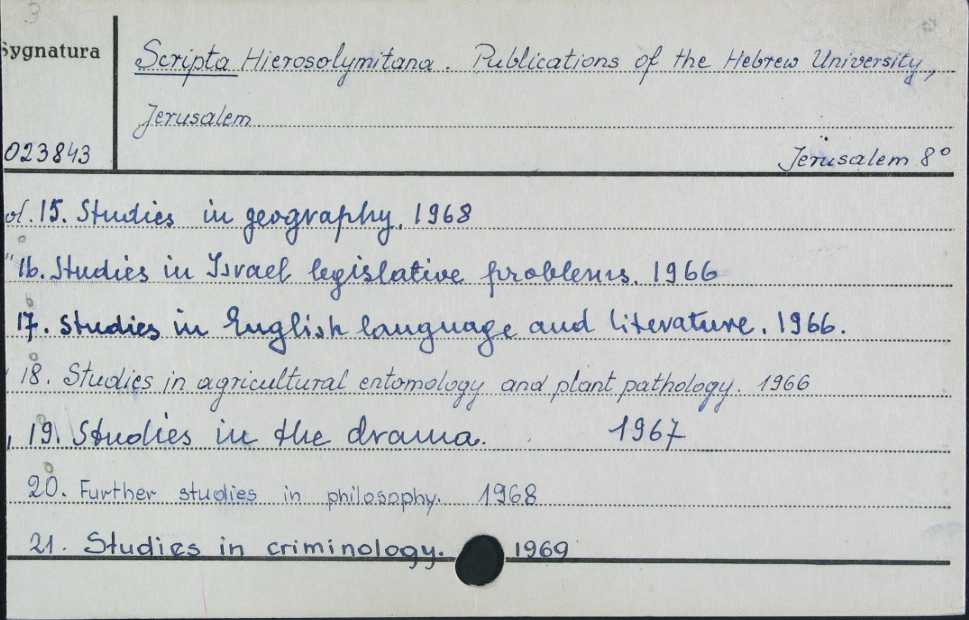 3
Sygnatura
Scripta Hierosolymitana. Publications of the Hebrew University,
Jerusalem
023843
Jerusalem 8°
ol. 15. Studies in geography. 1968
" 16. Studies in Israel legislative problems. 1966
17. Studies in English language and literature. 1966.
18. Studies in agricultural entomology and plant pathology. 1966
19. Studies in the drama. 1967
20. Further studies in philosophy. 1968
21. Studies in criminology. 1969